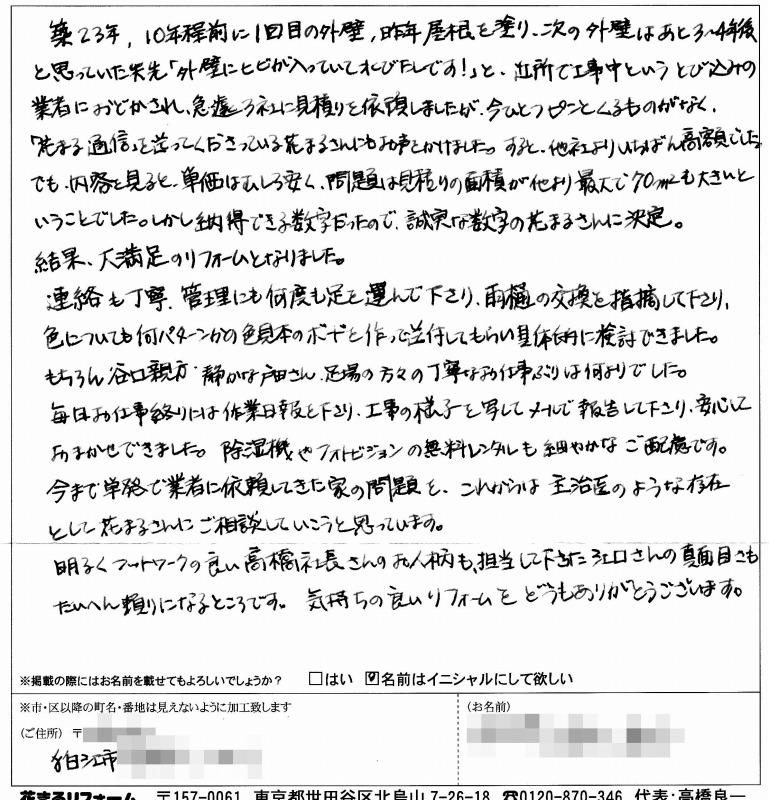 築23年，10年程前に1回目の外壁，昨年屋根を塗り、次の外壁はあと3〜4年後
と思っていた矢先「外壁にヒビが入っていてオレびたしです！」と、近所で工事中というとび込みの
業者におどかされ、急遽3社に見積りを依頼しましたが、今ひとつピンとくるものがなく、
「花まる通信」を送ってくださっている花まるさんにもお声をかけました。すると、他社よりいちばん高額でした。
でも、内容を見ると、単価はむしろ安く、問題は見積りの面積が他より最大で70㎡も大きいと
いうことでした。しかし納得できる数字だったので、誠実な数字の花まるさんに決定。
結果、大満足のリフォームとなりました。
連絡も丁寧、管理にも何度も足を運んで下さり、雨樋の交換を指摘して下さり、
色についても何パターンかの色見本のボードを作って送付してもらい具体的に検討できました。
もちろん谷口親方、静かな戸田さん、足場の方々の丁寧なお仕事ぶりは何よりでした。
毎日お仕事終りには作業日報を下さり、工事の様子を写してメールで報告して下さり、安心して
おまかせできました。除湿機やフォトビジョンの無料レンタルも細やかなご配慮です。
今まで単発で業者に依頼してきた家の問題を、これからは主治医のような存在
として花まるさんにご相談していこうと思っています。
明るくフットワークの良い高橋社長さんのお人柄も、担当して下さった江口さんの真面目さも
たいへん頼りになるところです。気持ちの良いリフォームをどうもありがとうございます。
※掲載の際にはお名前を載せてもよろしいでしょうか？ □はい ☑名前はイニシャルにして欲しい
※市・区以降の町名・番地は見えないように加工致します
（ご住所）〒
狛江市
（お名前）
花まるリフォーム 〒157-0061 東京都世田谷区北烏山7-26-18 ☎0120-870-346 代表：高橋良一